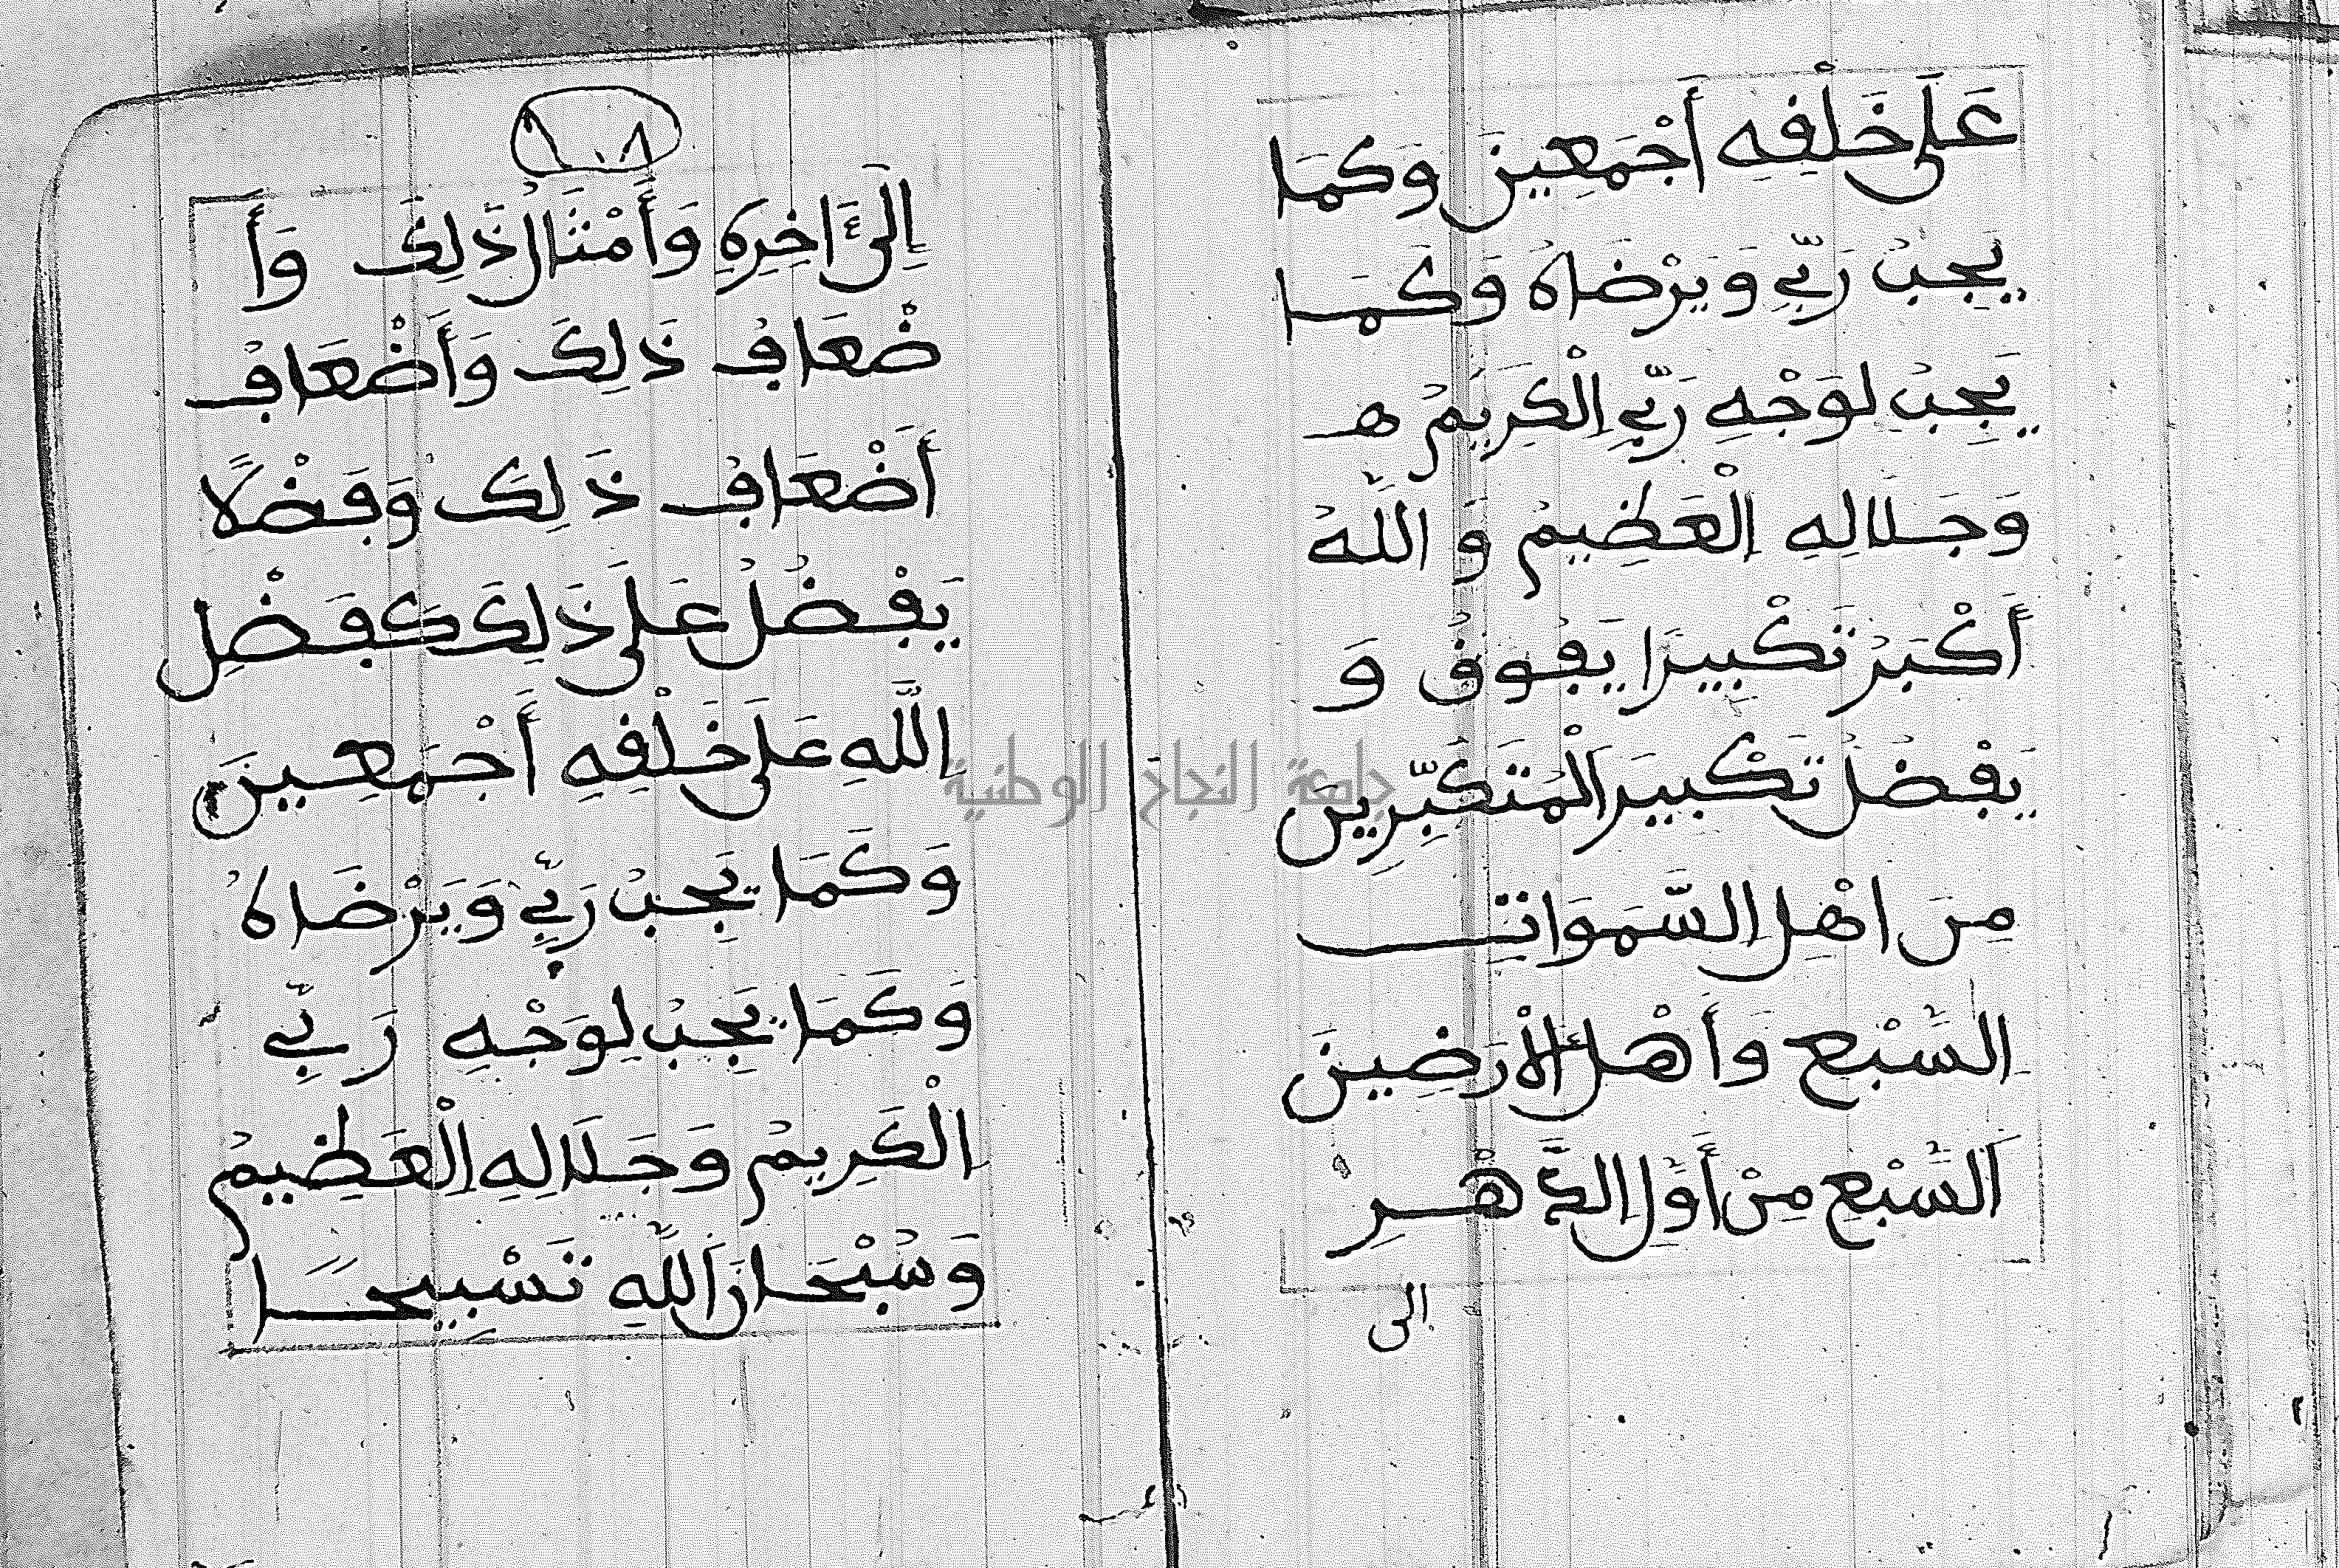 عَلَى خَلْقِهِ أَجْمَعِينَ وَكَمَا
يُحِبُّ رَبِّي وَيَرْضَاهُ وَكَمَا
يَجِبُ لِوَجْهِ رَبِّي الْكَرِيمِ هـ
وَجَلَالِهِ الْعَظِيمِ وَاللَّهُ
أَكْبَرُ تَكْبِيرًا يَفُوقُ وَ
يَفْضُلُ تَكْبِيرَ الْمُتَكَبِّرِينَ
مِنَ اهْلِ السَّمَوَاتِ
السَّبْعِ وَأَهْلِ الْأَرَضِينَ
السَّبْعِ مِنْ أَوَّلِ الدَّهْرِ
الى
١٠٨
إِلَىٰ ءَاخِرِهِ وَأَمْثَالَ ذَلِكَ وَأَ
ضْعَافِ ذَلِكَ وَأَضْعَافِ
أَضْعَافِ ذَلِكَ وَفَضْلًا
يَفْضُلُ عَلَى ذَلِكَ كَفَضْلِ
اللَّهِ عَلَى خَلْقِهِ أَجْمَعِينَ
وَكَمَا يُحِبُّ رَبِّي وَيَرْضَاهُ
وَكَمَا يَجِبُ لِوَجْهِ رَبِّي
الْكَرِيمِ وَجَلَالِهِ الْعَظِيمِ
وَسُبْحَانَ اللَّهِ تَسْبِيحًا
جامعة النجاح الوطنية